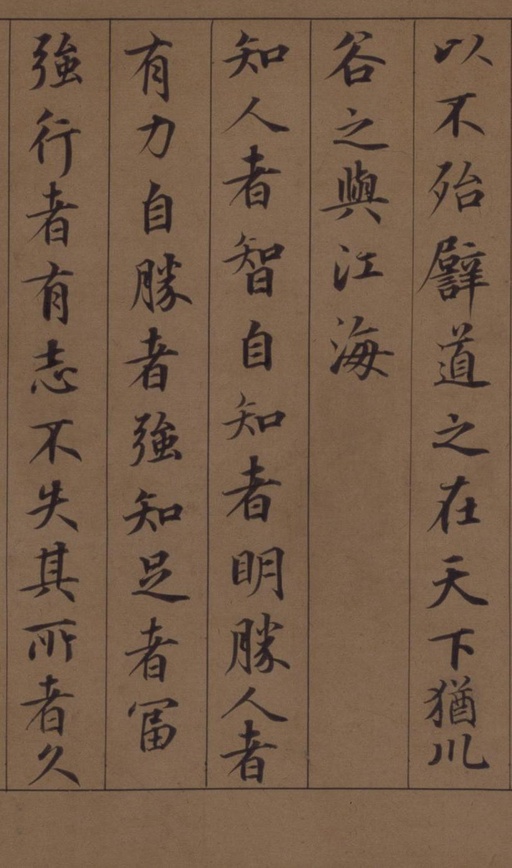 以不殆譬道之在天下猶川
谷之與江海
知人者智自知者明勝人者
有力自勝者強知足者冨
強行者有志不失其所者久